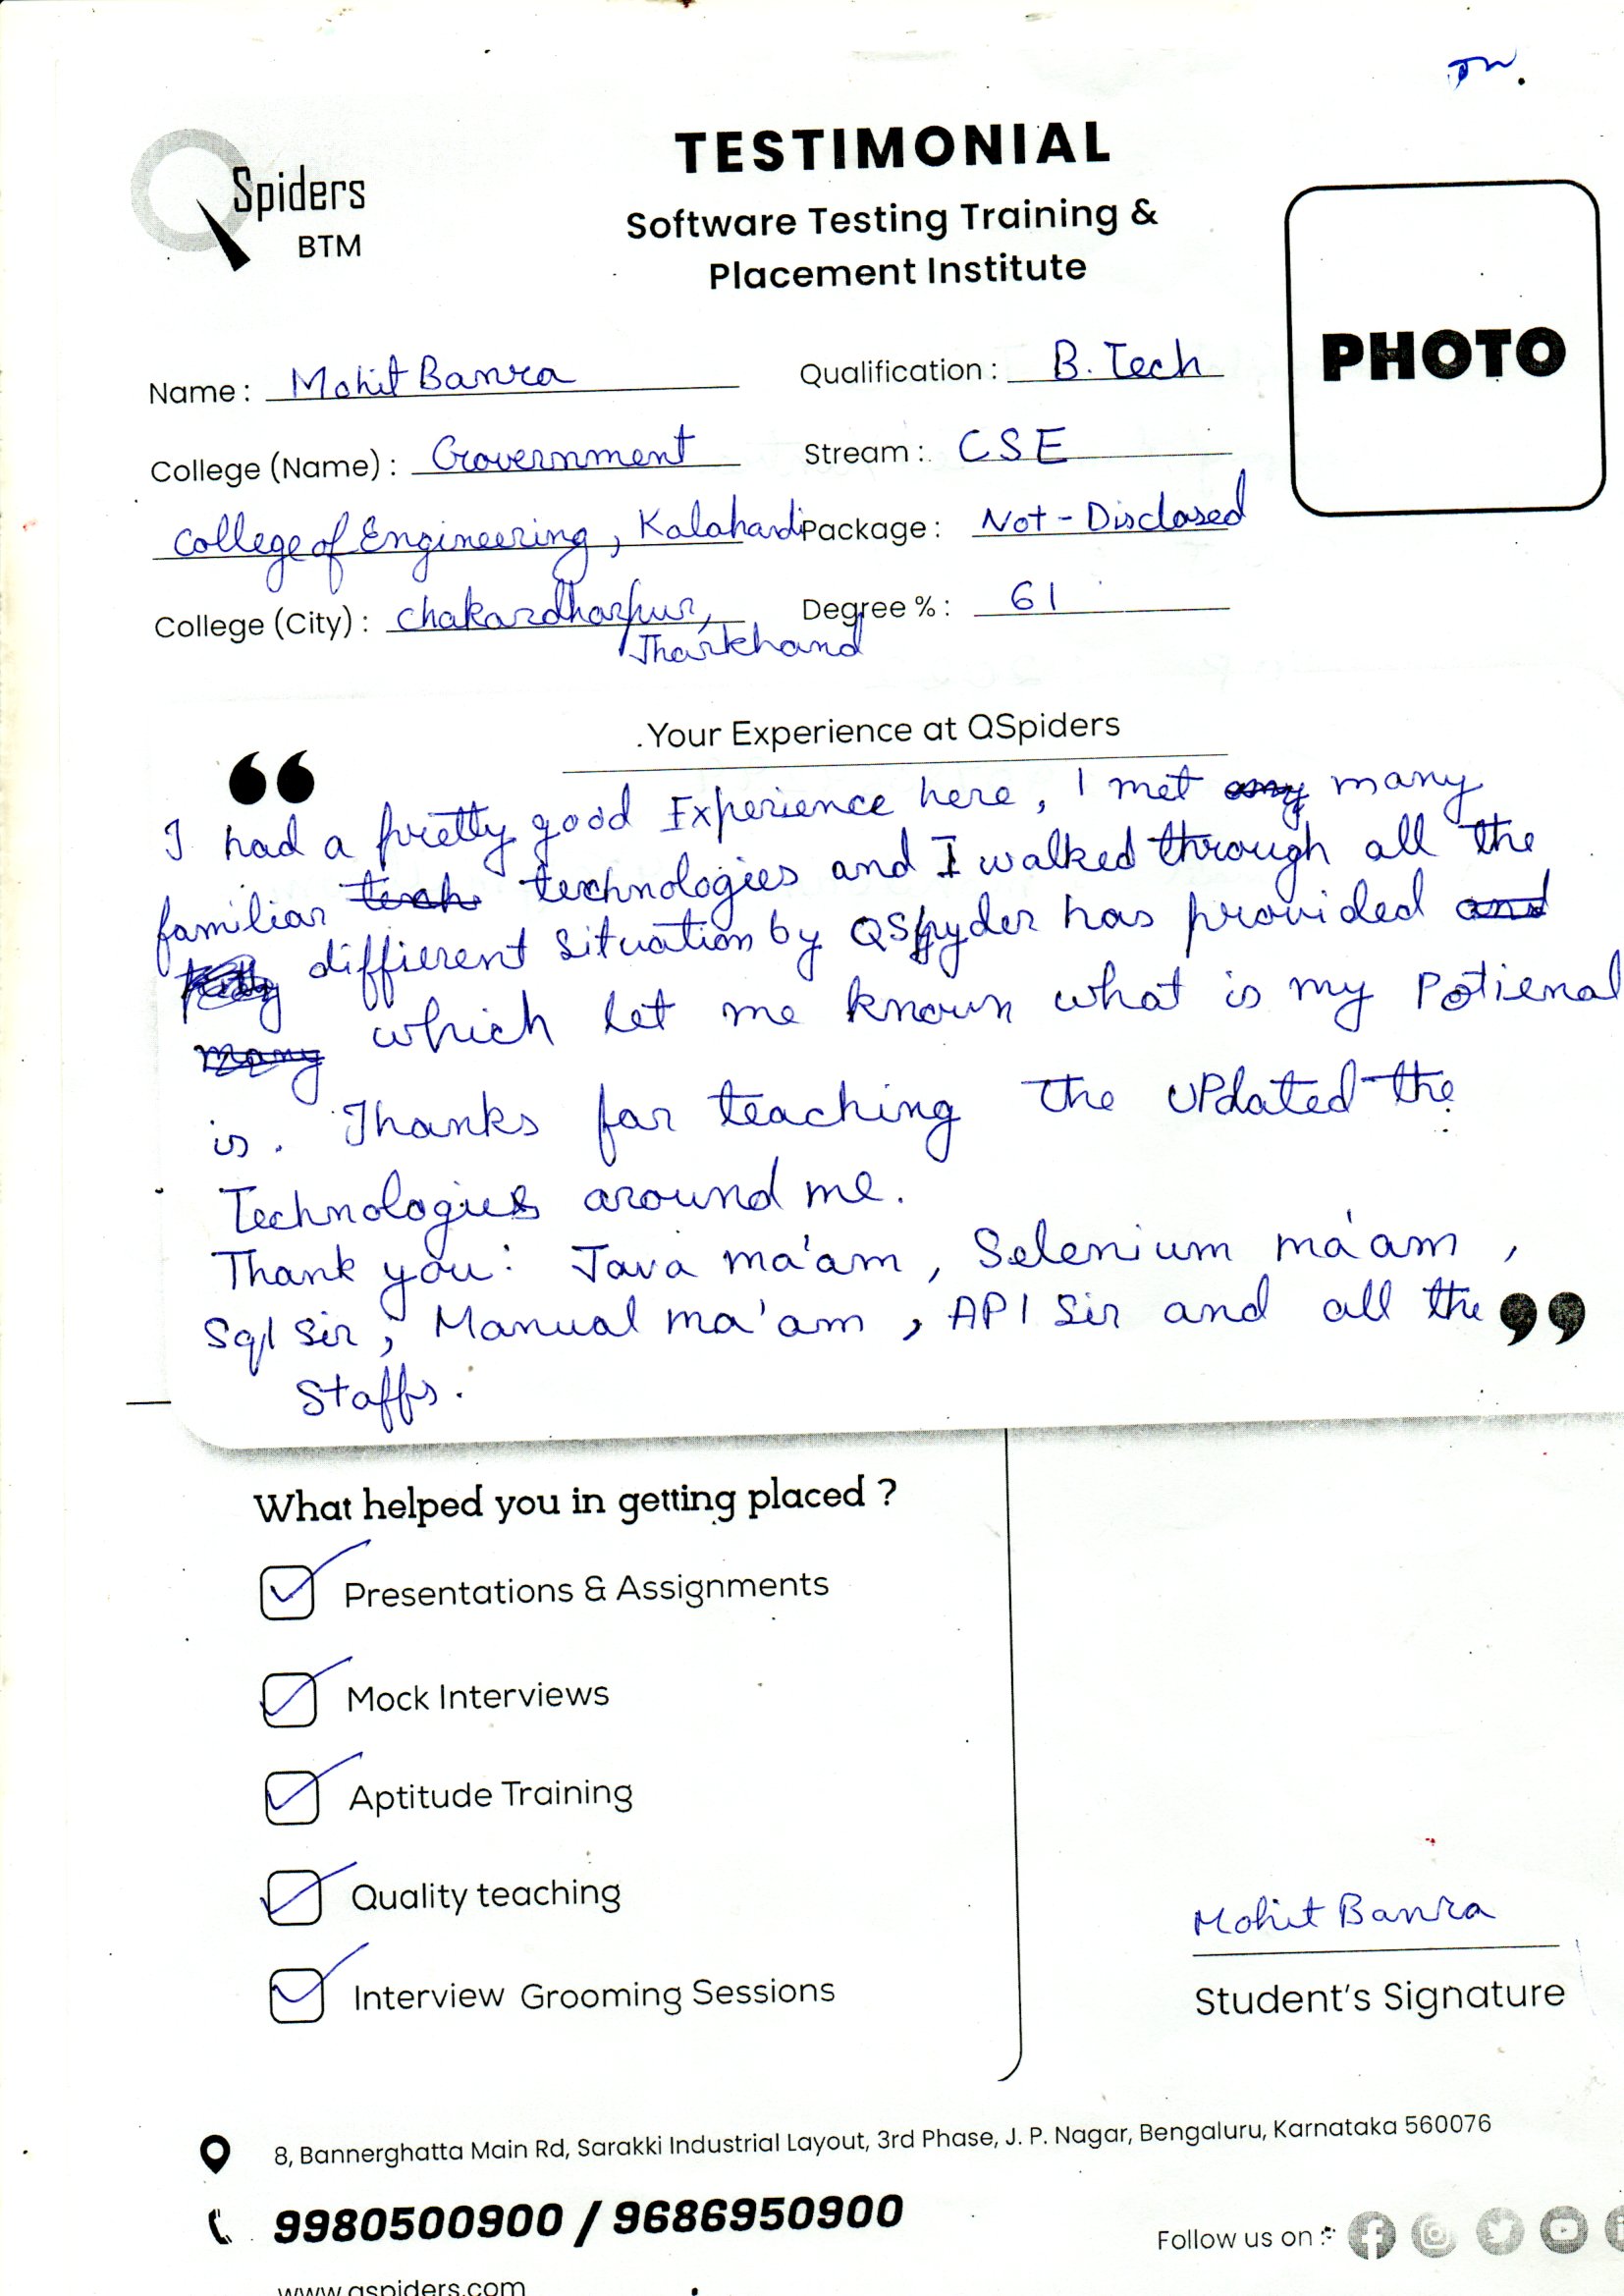 TESTIMONIAL
QSpiders
BTM
Software Testing Training &
Placement Institute
PHOTO
Name : Mohit Banra
Qualification : B. Tech
College (Name) : Government
Stream : CSE
College of Engineering, Kalahandi
Package : Not - Disclosed
College (City) : Chakardharpur,
Jharkhand
Degree % : 61
Your Experience at QSpiders
I had a pretty good Experience here, I met many
familiar technologies and I walked through all the
diffierent situation by QSpyder has provided
which let me known what is my Potienal
is. Thanks for teaching the UPdated the
Technologies around me.
Thank you: Java ma'am, Selenium ma'am,
Sql Sir, Manual ma'am, API Sir and all the
Staffs.
What helped you in getting placed ?
Presentations & Assignments
Mock Interviews
Aptitude Training
Quality teaching
Interview Grooming Sessions
Mohit Banra
Student's Signature
8, Bannerghatta Main Rd, Sarakki Industrial Layout, 3rd Phase, J. P. Nagar, Bengaluru, Karnataka 560076
9980500900 / 9686950900
Follow us on :
www.qspiders.com